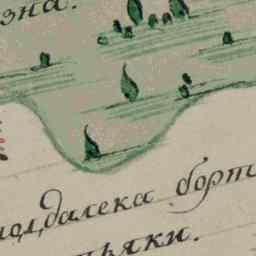 зна.
подалека борт
ьяки.